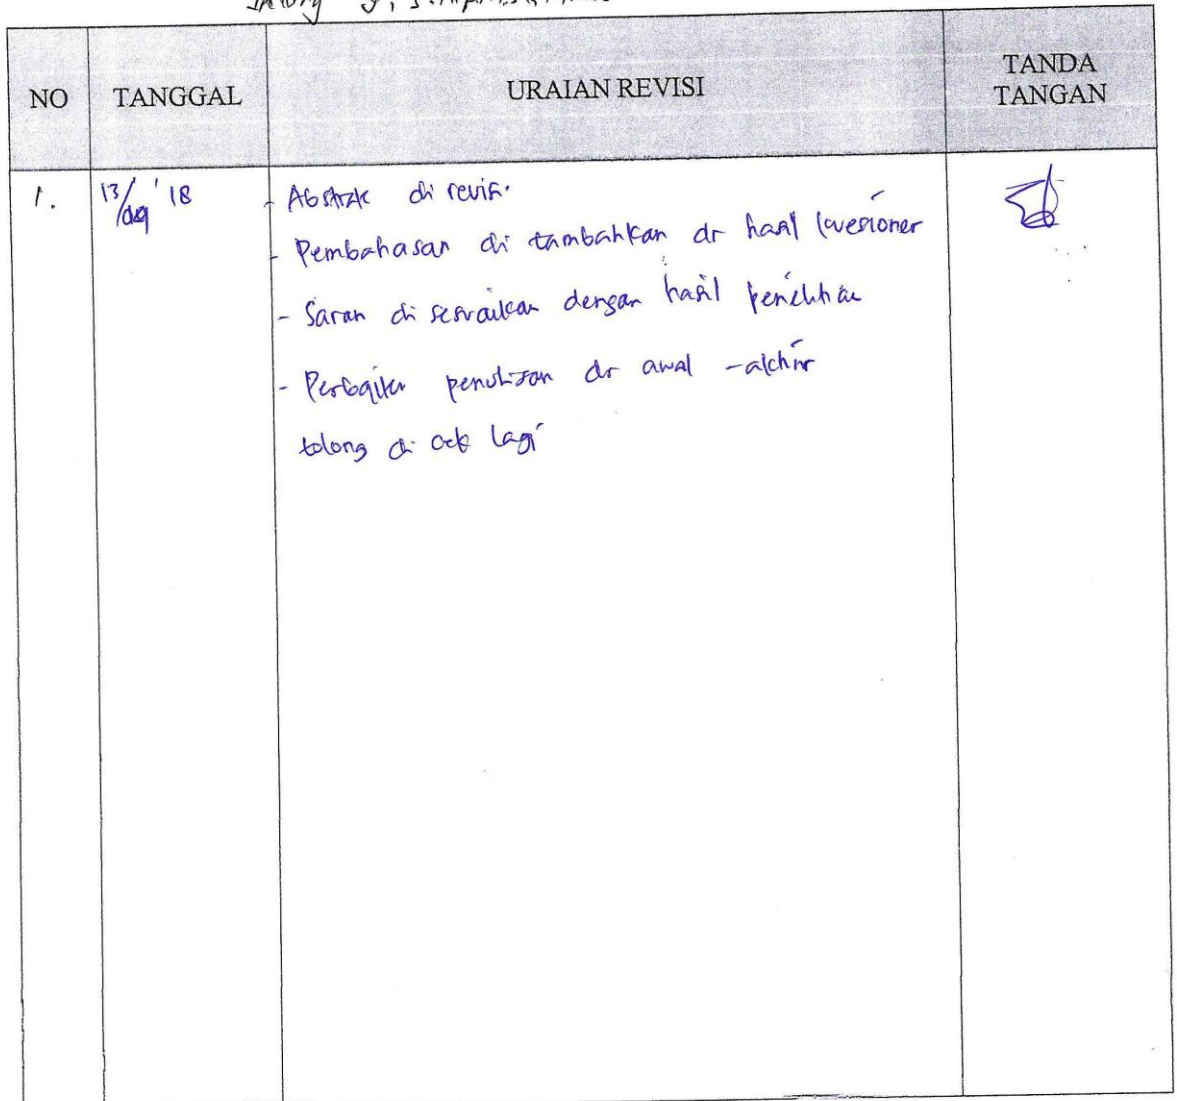 NO TANGGAL URAIAN REVISI TANDA TANGAN
1. 13/ '18 - Abstrak di revisi.
- Pembahasan di tambahkan dr hasil kuesioner
- Saran di sesuaikan dengan hasil penelitian
- Perbaiki penulisan dr awal - akhir
tolong di cek lagi